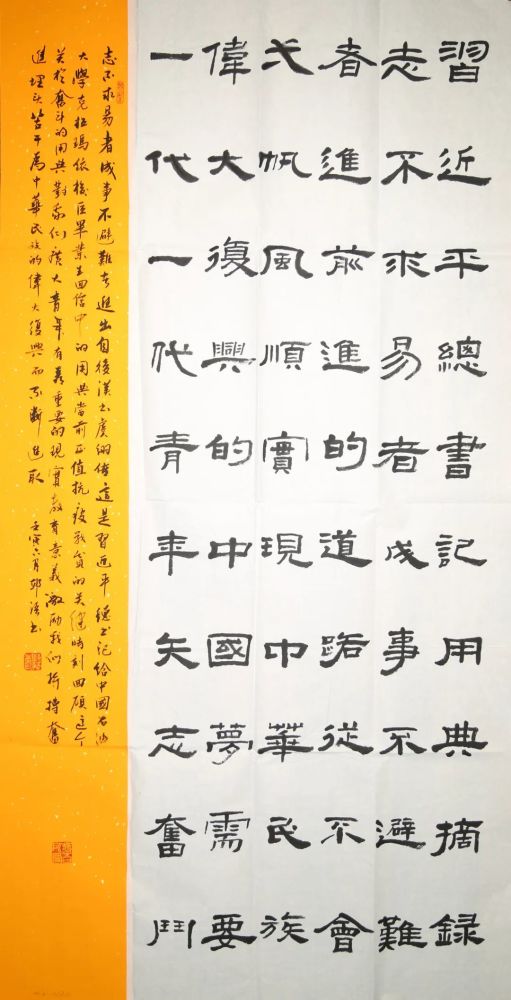 習近平總書記用典摘録
志不求易者成事不避難
者進前進的道路從不會
弌帆風順實現中華民族
偉大復興的中國夢需要
一代一代青年矢志奮鬥
志不求易者成事不避難者進出自後漢书虞詡傳這是習近平總书记给中國石油
大學克拉瑪依校區畢業生回信中的用典當前正值抗疫戰貧的关鍵時刻回顧這个
关於奮斗的用典對我们廣大青年有着重要的現實教育意義激励我们拚搏奮
進埋头苦干為中華民族的偉大復興而不断進取 壬寅六月书